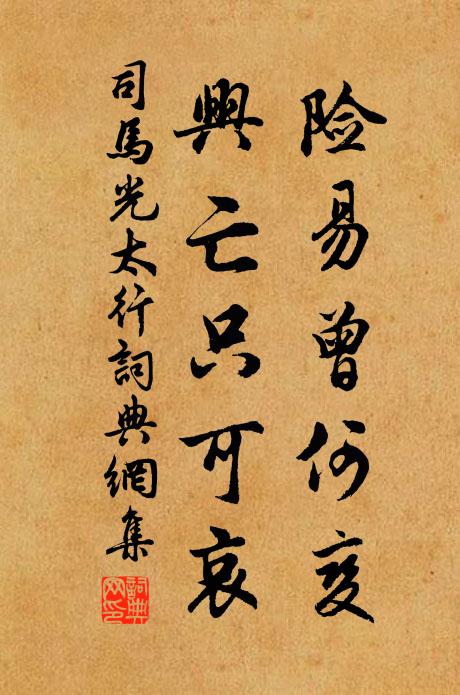 险易曾何变
興亡只可哀
司馬光太行詞典網集
詞典
网印